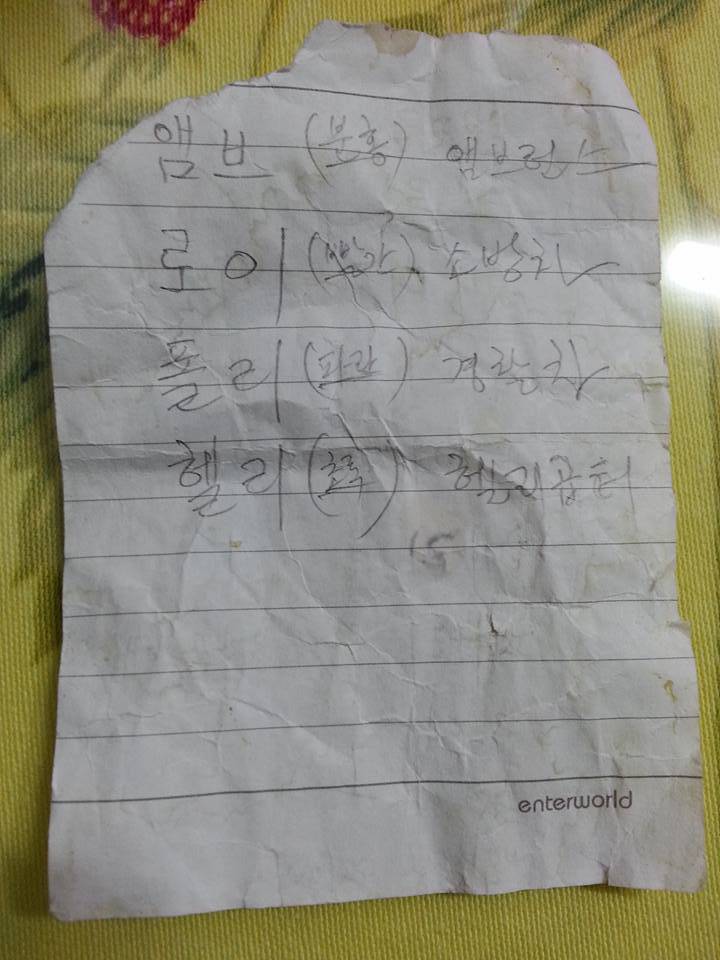 앰브 (분홍) 앰브런스
로이 (빨간) 소방차
폴리 (파란) 경찰차
헬리 (초록) 헬리곱터
enterworld